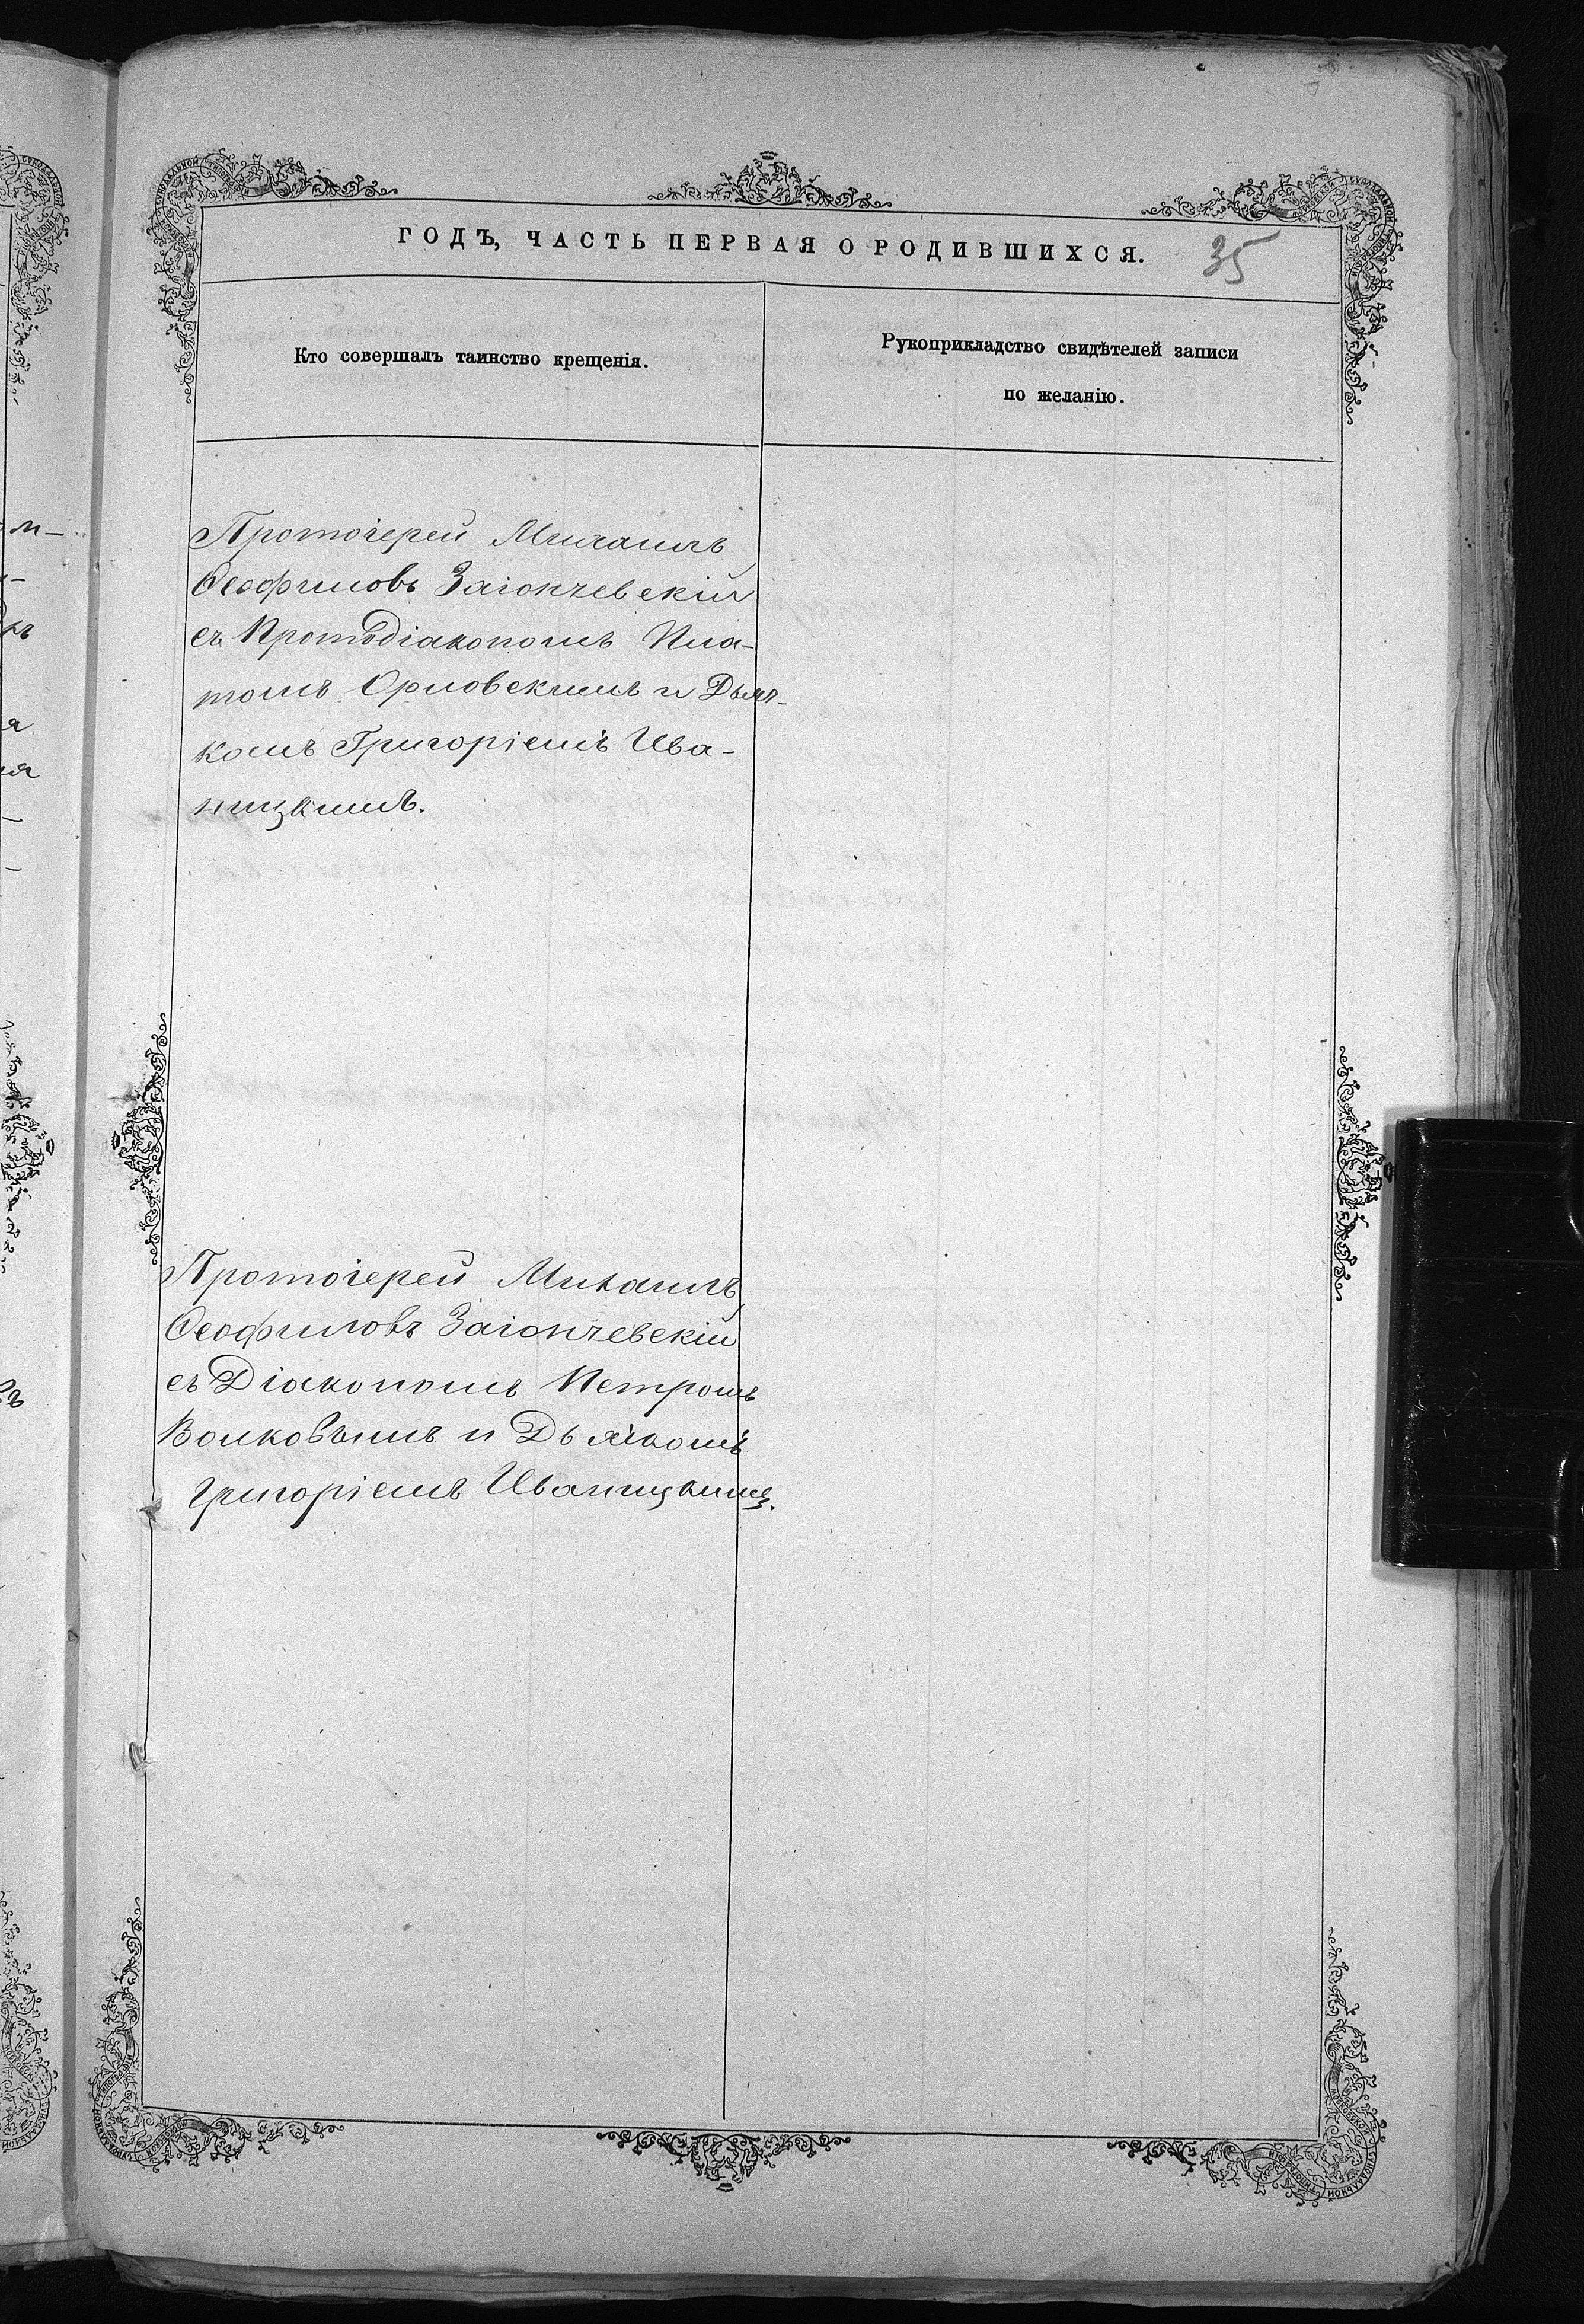 ГОДЪ, ЧАСТЬ ПЕРВАЯ О РОДИВШИХСЯ.
35
Кто совершалъ таинство крещенія.
Рукоприкладство свидѣтелей записи
по желанію.
Протоіерей Михаилъ
Ѳеофиловъ Заіончевскій
съ Протодіакономъ Пла-
томъ Орловскимъ и Дьяч-
комъ Григоріемъ Ива-
ницкимъ.
Протоіерей Михаилъ
Ѳеофиловъ Заіончевскій
съ Діакономъ Петромъ
Волковымъ и Дьячкомъ
Григоріемъ Иваницкимъ.